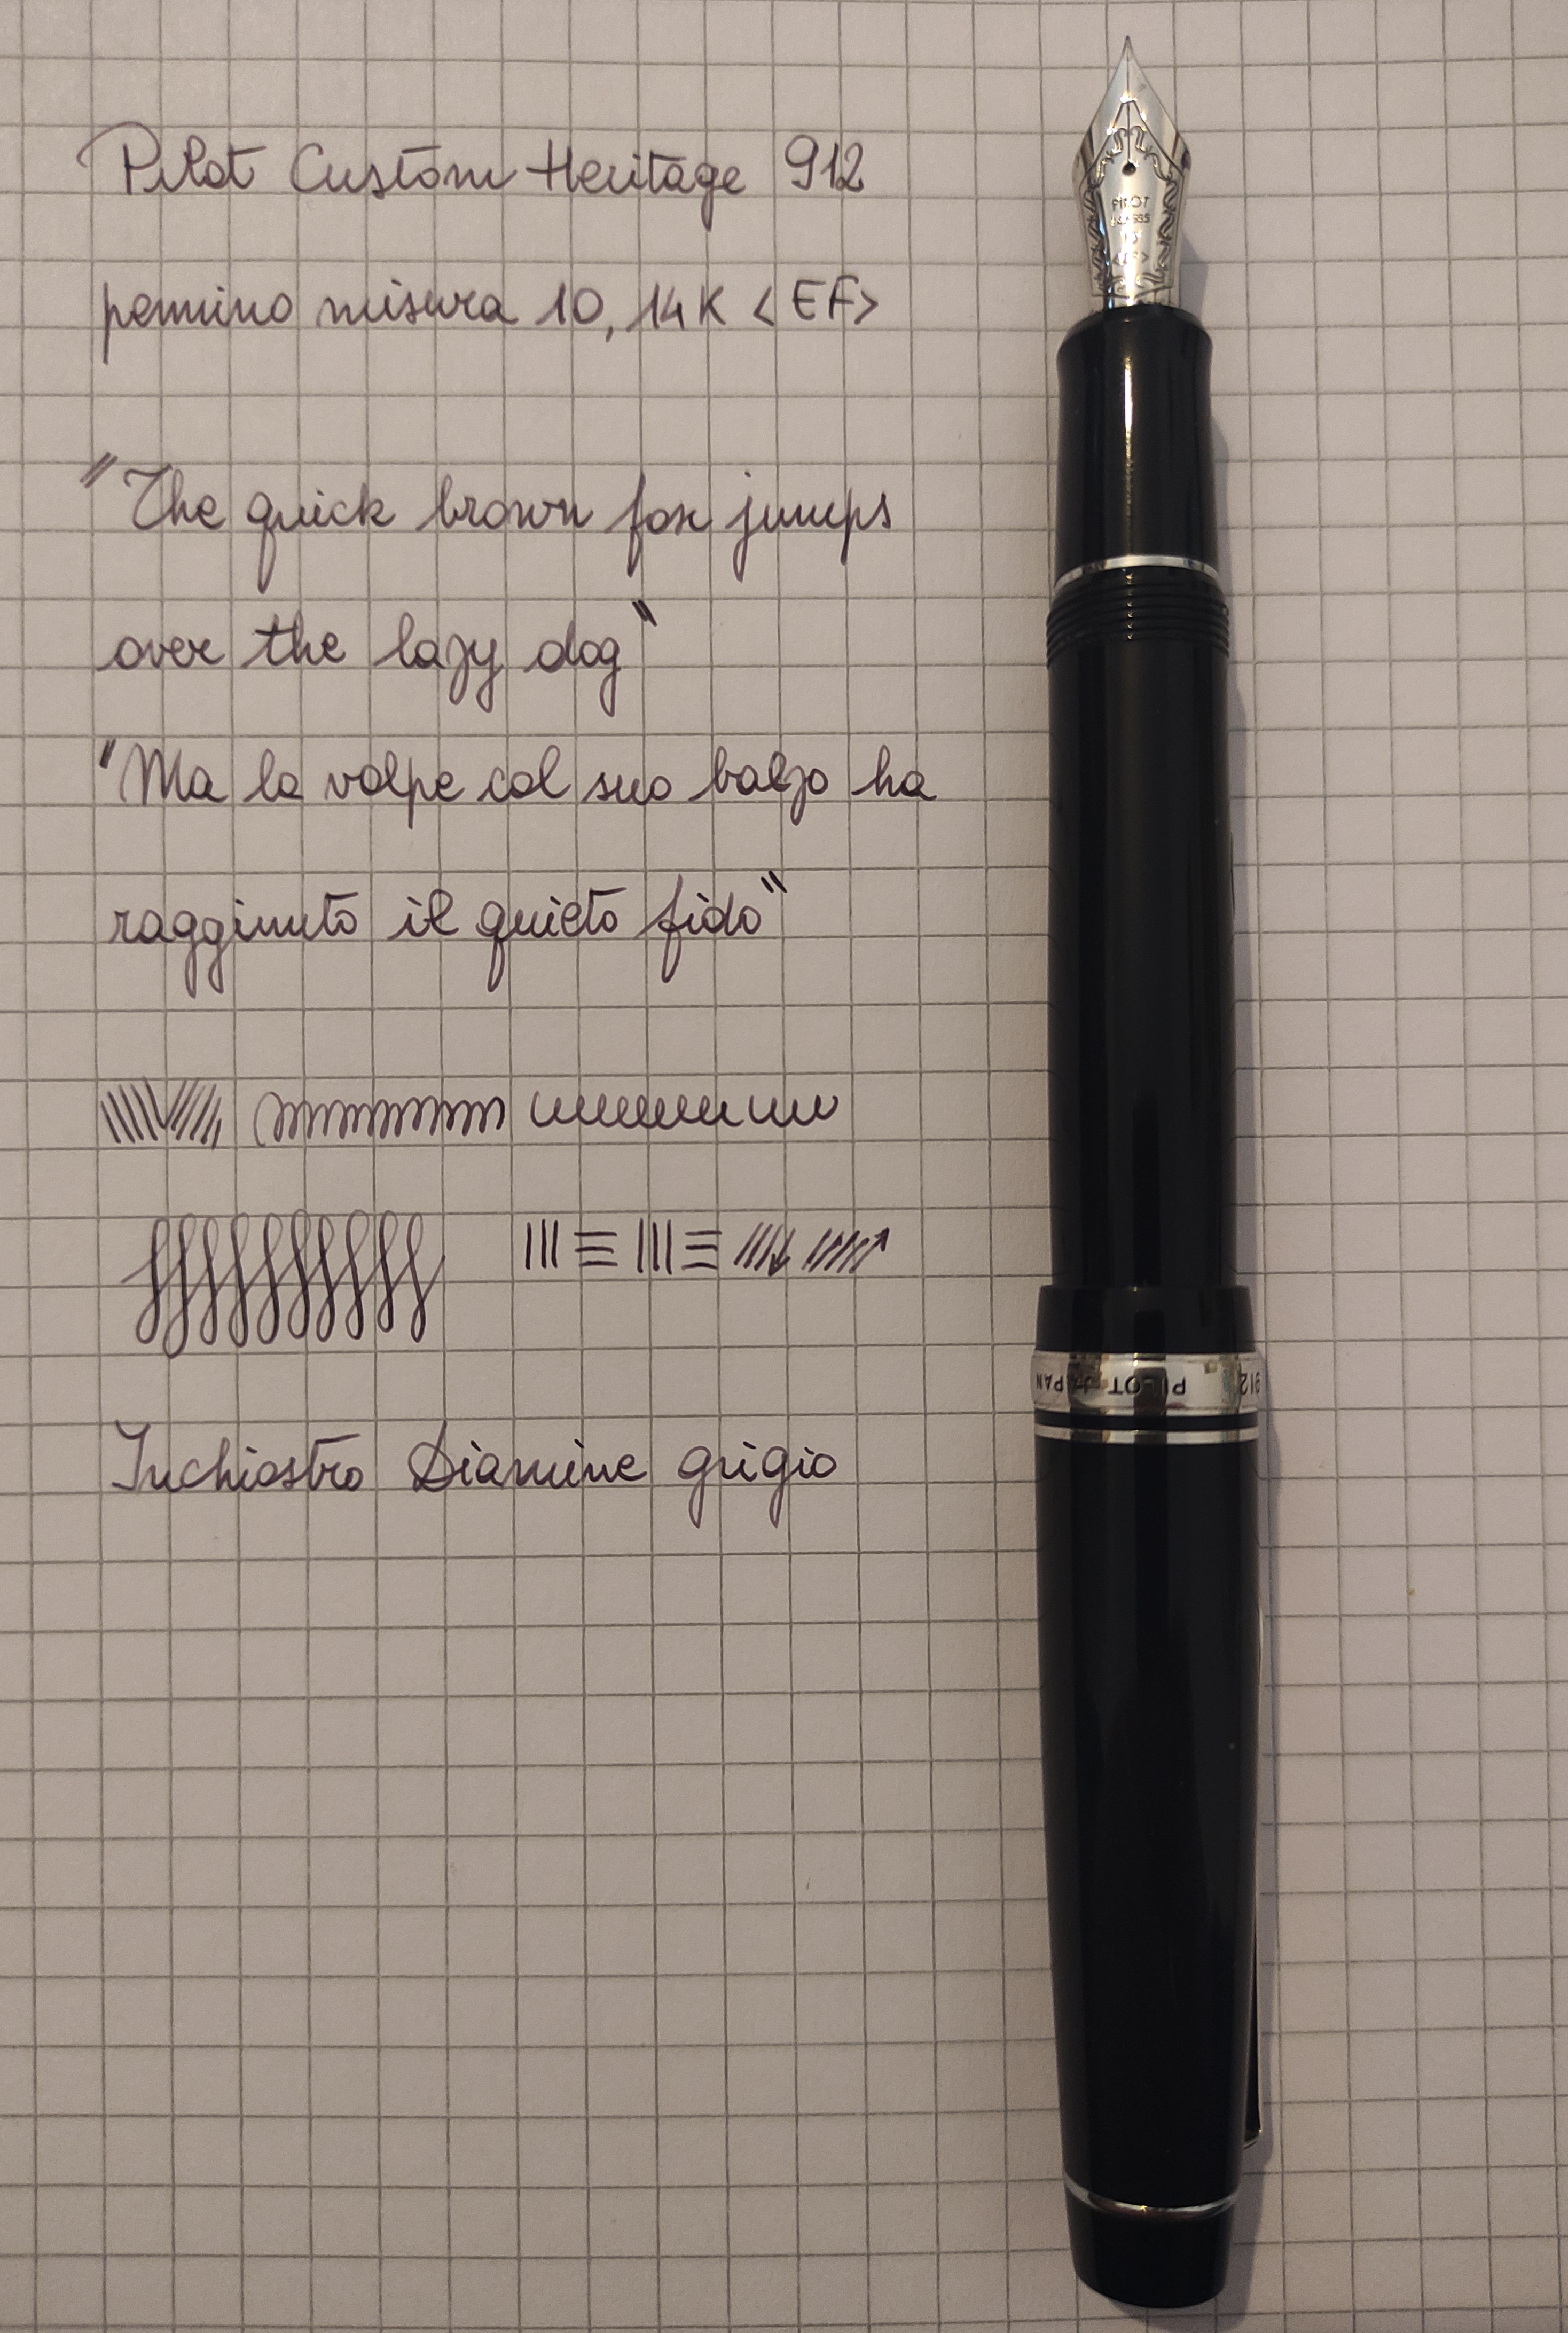 Pilot Custom Heritage 912
pennino misura 10, 14K <EF>
"The quick brown fox jumps
over the lazy dog"
"Ma la volpe col suo balzo ha
raggiunto il quieto fido"
Inchiostro Diamine grigio
PILOT
14K-585
10
<EF>
912 PILOT JAPAN